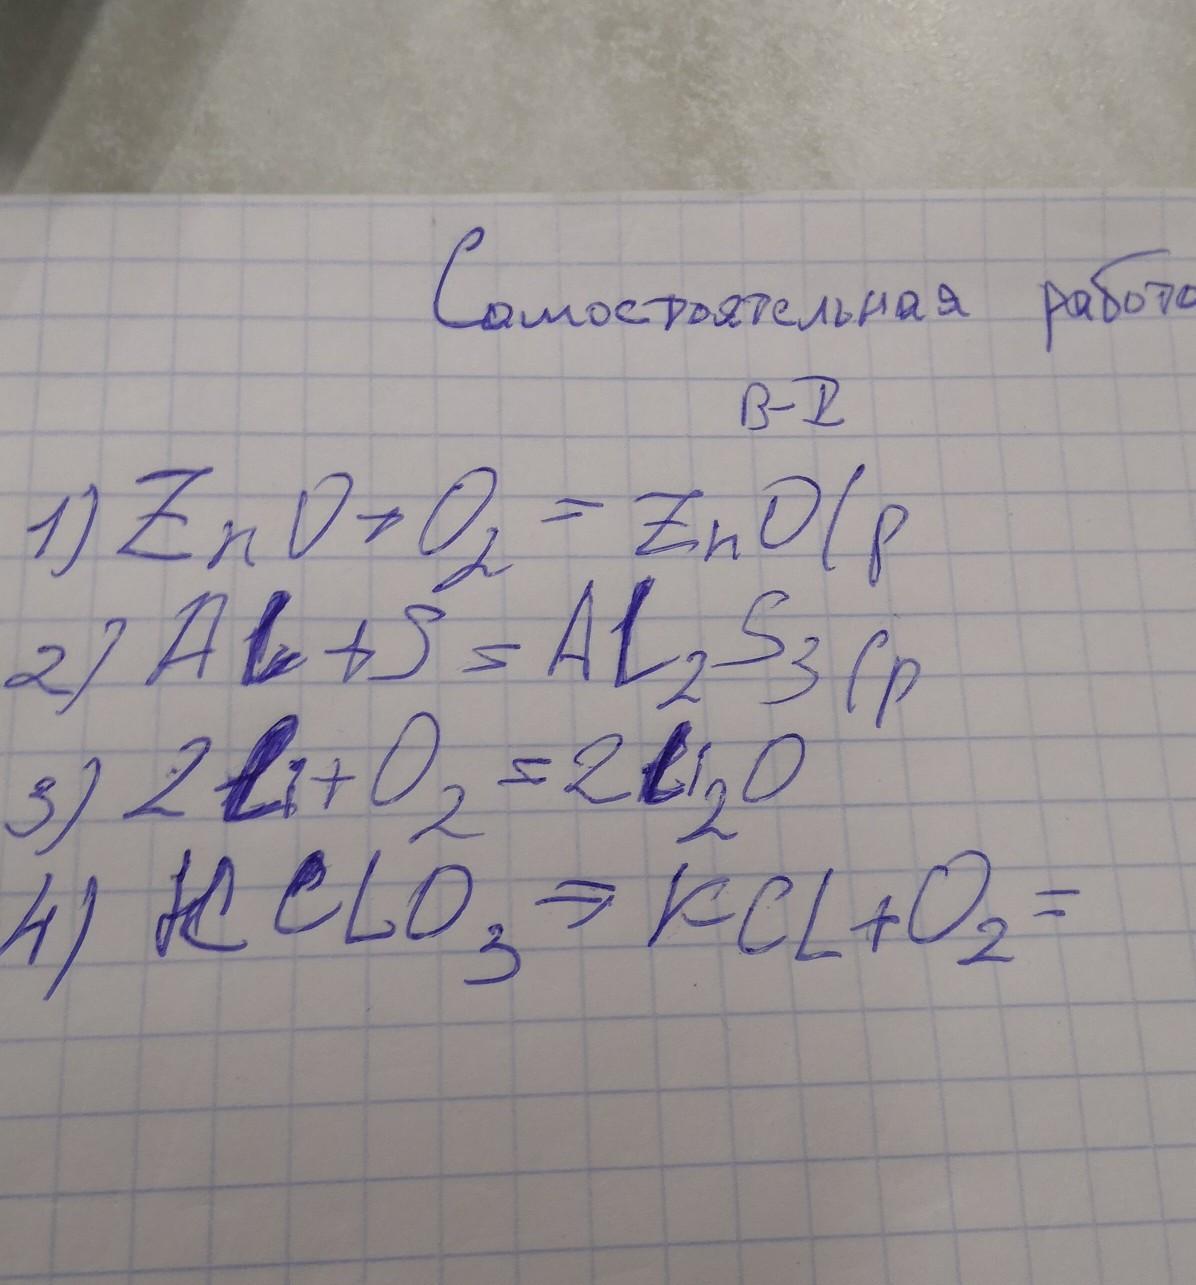 Самостоятельная работа
В-I
1) ZnO + O₂ = ZnO(р
2) AL + S = AL₂S₃(р
3) 2Li + O₂ = 2Li₂O
4) KCLO₃ => KCL + O₂ =